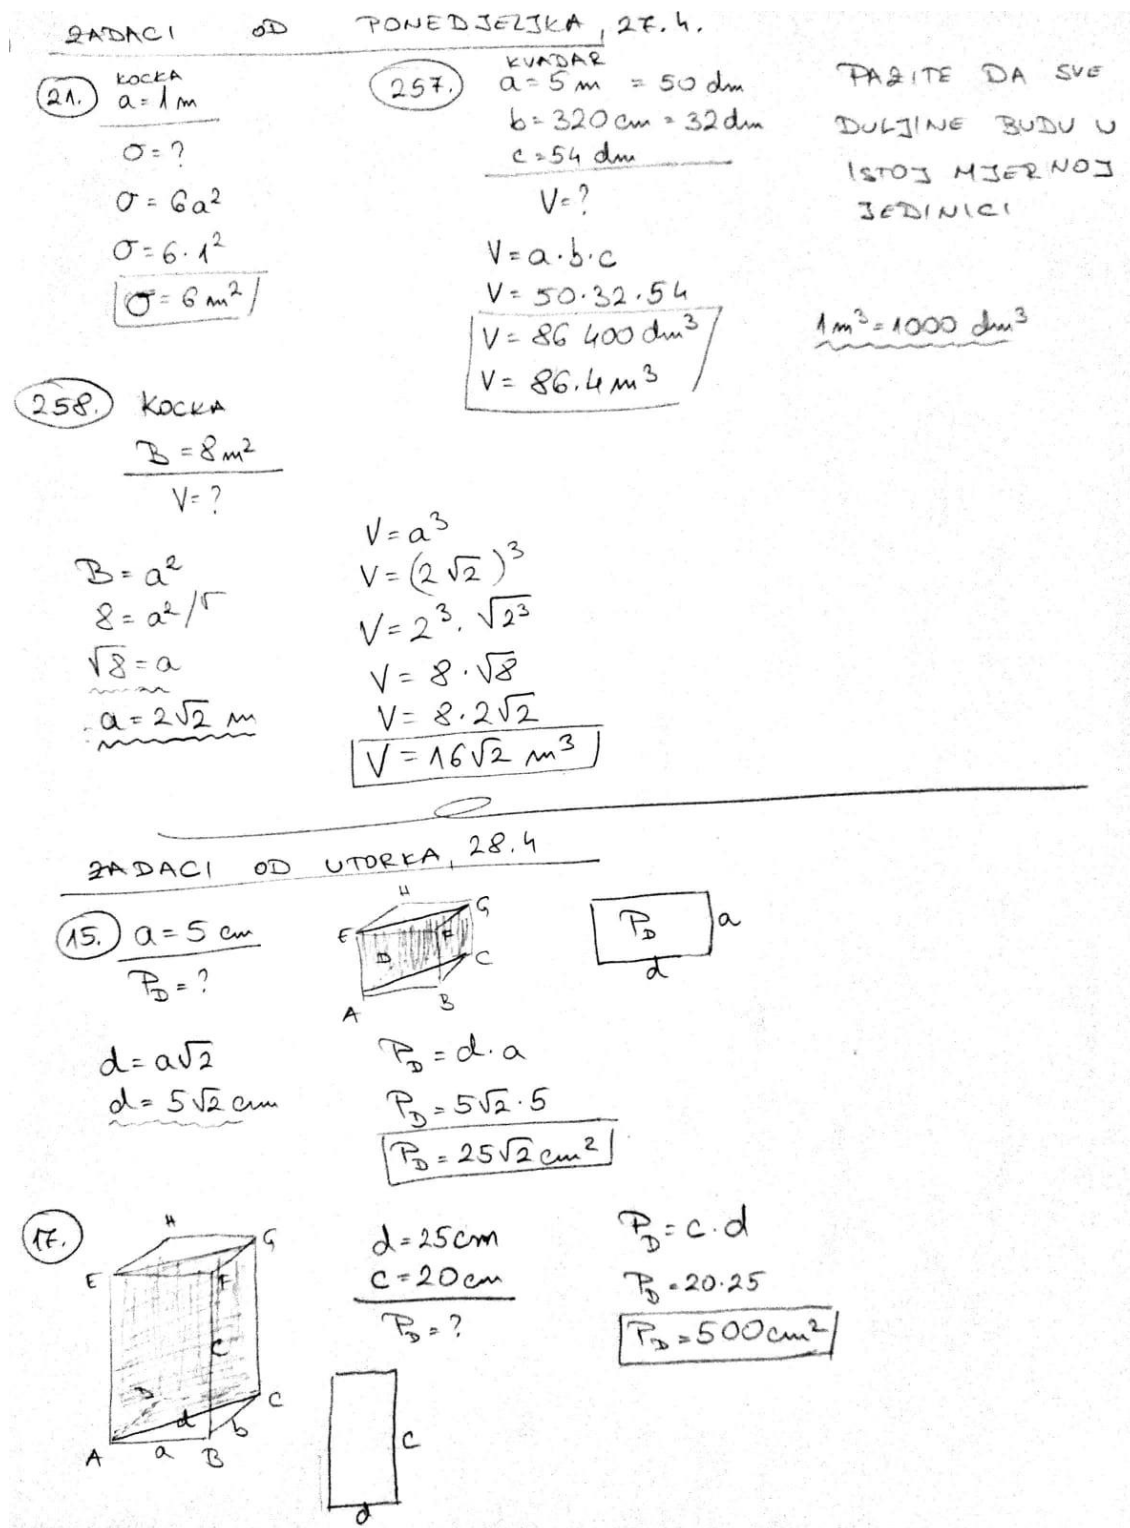 ZADACI OD PONEDJELJKA, 27.4.
21.
KOCKA
a = 1 m
σ = ?
σ = 6a²
σ = 6 · 1²
σ = 6 m²
257.
KVADAR
a = 5 m = 50 dm
b = 320 cm = 32 dm
c = 54 dm
V = ?
V = a · b · c
V = 50 · 32 · 54
V = 86 400 dm³
V = 86.4 m³
PAZITE DA SVE
DULJINE BUDU U
ISTOJ MJERNOJ
JEDINICI
1 m³ = 1000 dm³
258. KOCKA
B = 8 m²
V = ?
B = a²
8 = a² /√
√8 = a
a = 2√2 m
V = a³
V = (2√2)³
V = 2³ · √2³
V = 8 · √8
V = 8 · 2√2
V = 16√2 m³
ZADACI OD UTORKA, 28.4
15. a = 5 cm
P_D = ?
d = a√2
d = 5√2 cm
H
G
E
F
D
C
B
A
P_D
a
d
P_D = d · a
P_D = 5√2 · 5
P_D = 25√2 cm²
17.
H
G
E
F
c
D
C
d
b
A
a
B
d = 25 cm
c = 20 cm
P_D = ?
c
d
P_D = c · d
P_D = 20 · 25
P_D = 500 cm²